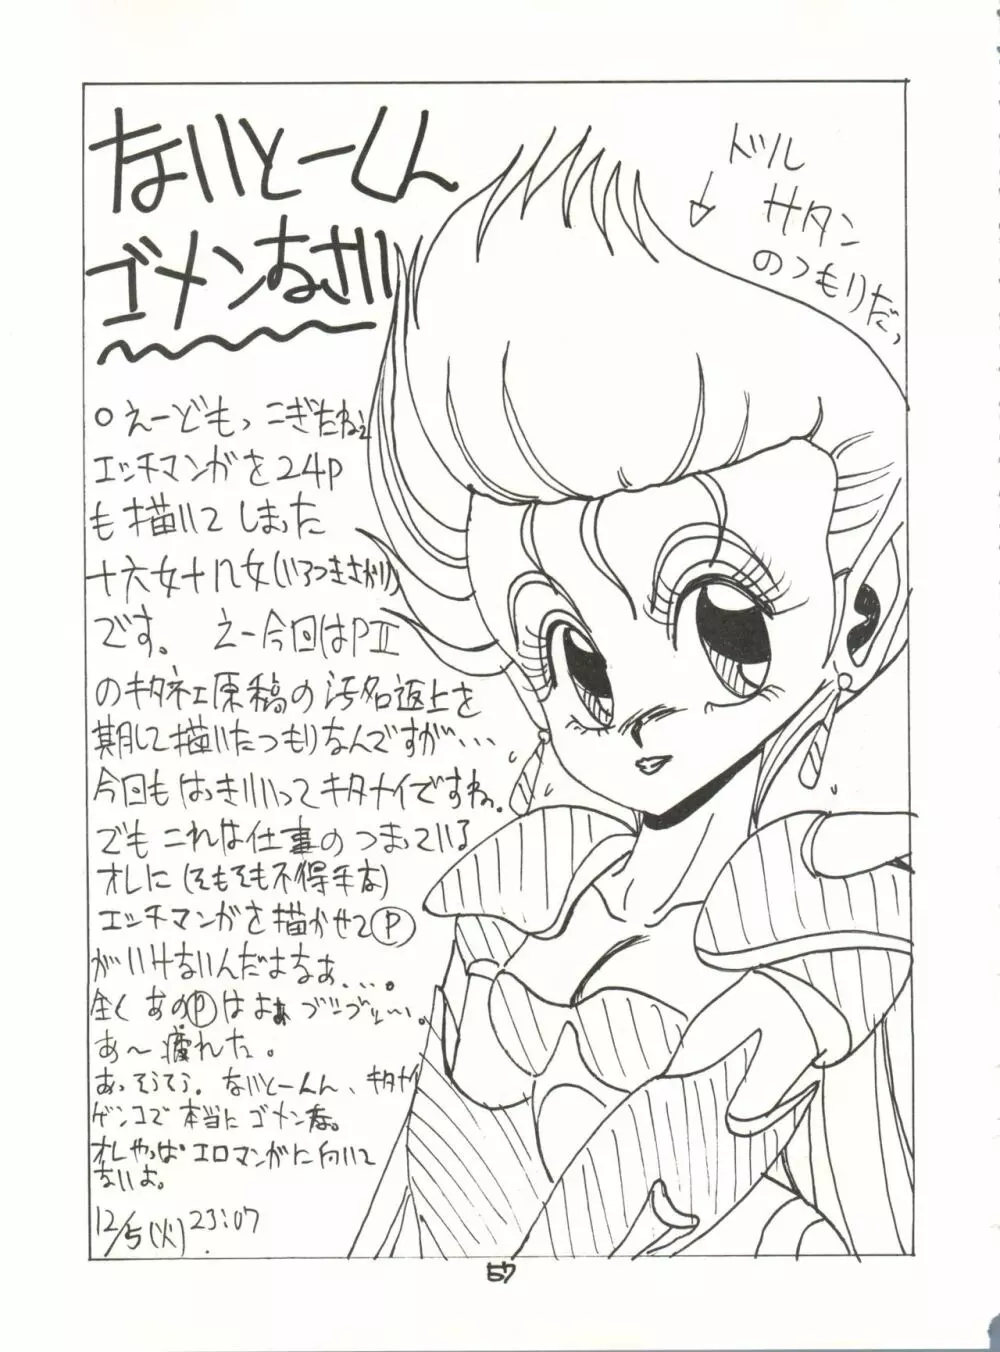 ないとーくん
ゴメンなさい
ドツル
サタン
のつもりだっ
○えーどもっ こぎたねえ
エッチマンガを24P
も描いてしまった
十六女十八女(いろつきさがり)
です。 えー今回はPⅡ
のキタネェ原稿の汚名返上を
期して描いたつもりなんですが・・・
今回もはっきりいってキタナイですね。
でもこれは仕事のつまっている
オレに(そもそも不得手な)
エッチマンガを描かせたⓅ
がいけないんだよなぁ....。
全くあのⓅはよぉ ブツブツ…。
あ〜疲れた。
あっそうそう。ないとーくん、キタナイ
ゲンコで本当にゴメンな。
オレやっぱエロマンガに向いて
ないよ。
12/5(火) 23:07
57